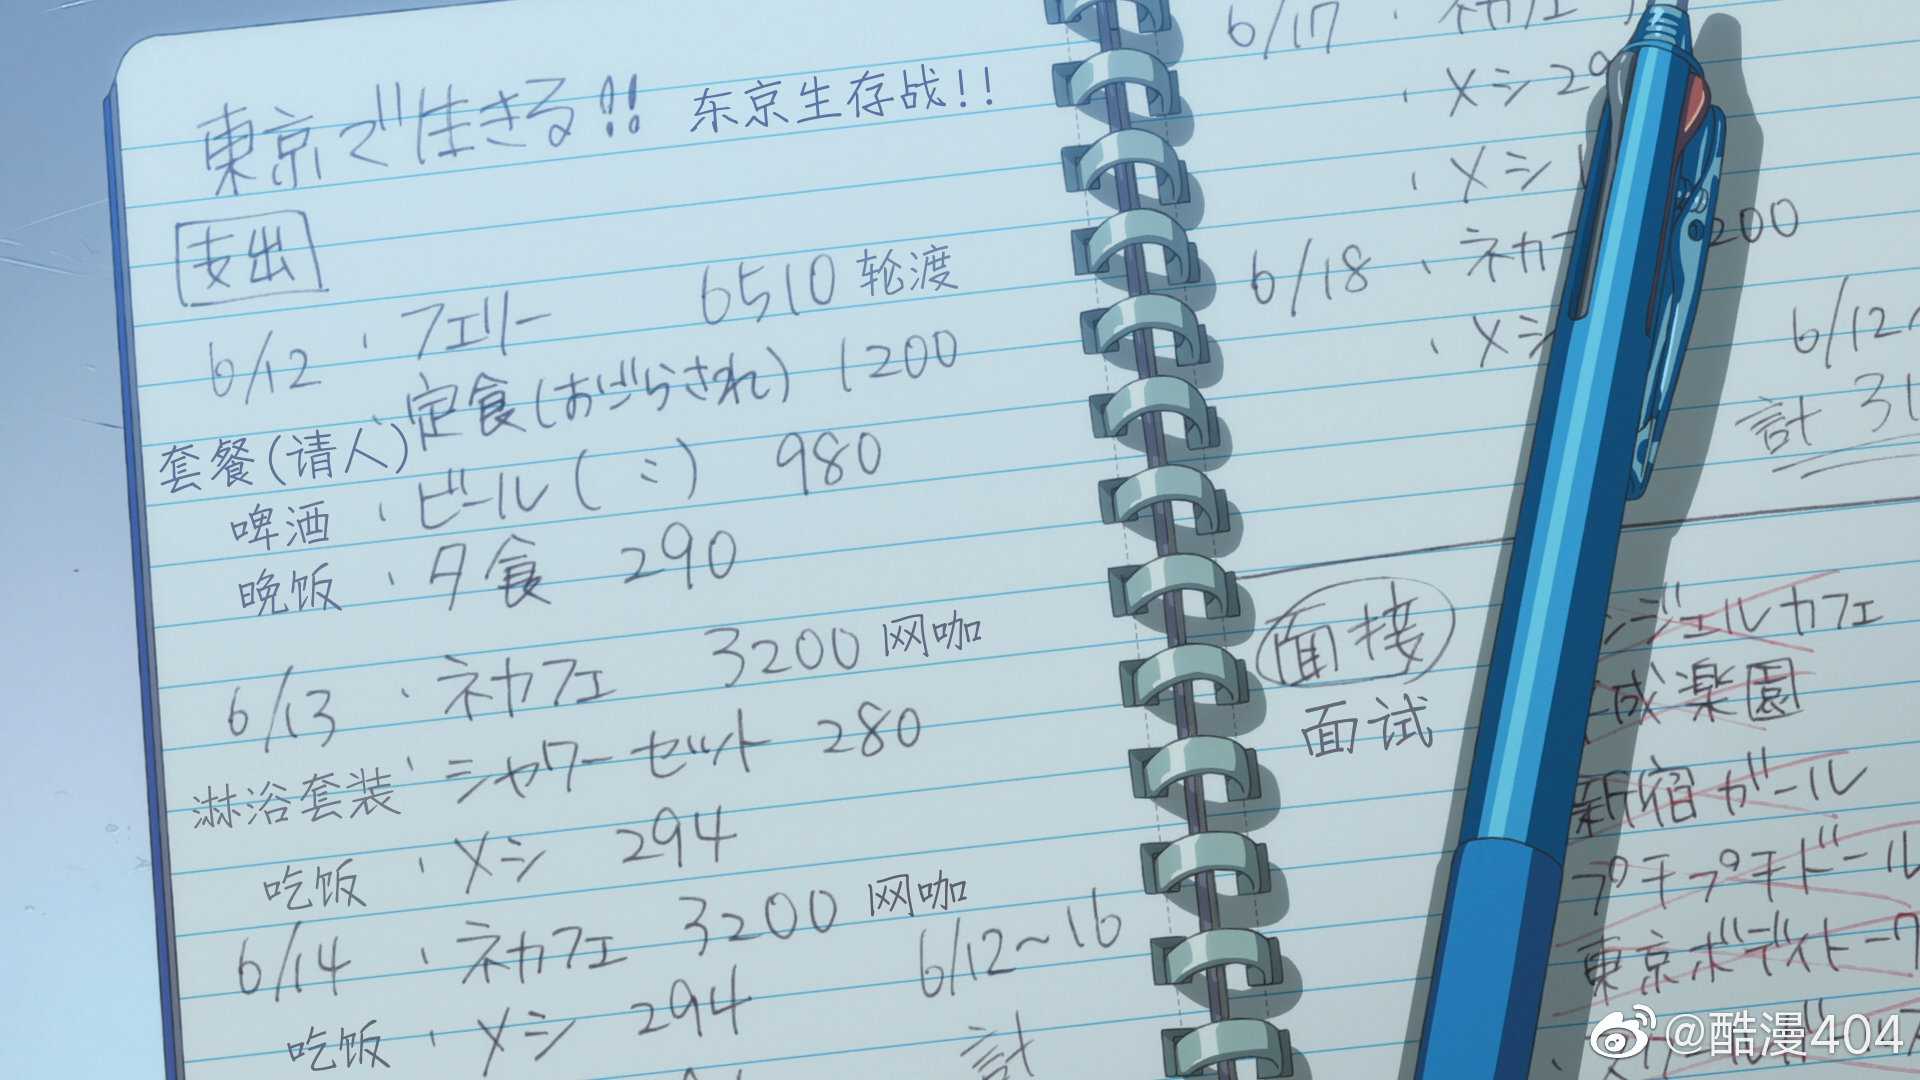 東京で生きる!! 东京生存战!!
支出
6/12 ・フェリー 6510 轮渡
・定食(おごらされ) 1200
套餐(请人)
啤酒 ・ビール(〃) 980
晚饭 ・夕食 290
6/13 ・ネカフェ 3200 网咖
淋浴套装 ・シャワーセット 280
吃饭 ・メシ 294
6/14 ・ネカフェ 3200 网咖
吃饭 ・メシ 294
6/12~16
計
6/17 ・ネカフェ
・メシ 29
・メシ 1
6/18 ・ネカフ 200
・メシ
6/12~
計 31
面接
面试
ンジェルカフェ
成楽園
新宿ガール
プチプチドール
東京ボディトーク
@酷漫404